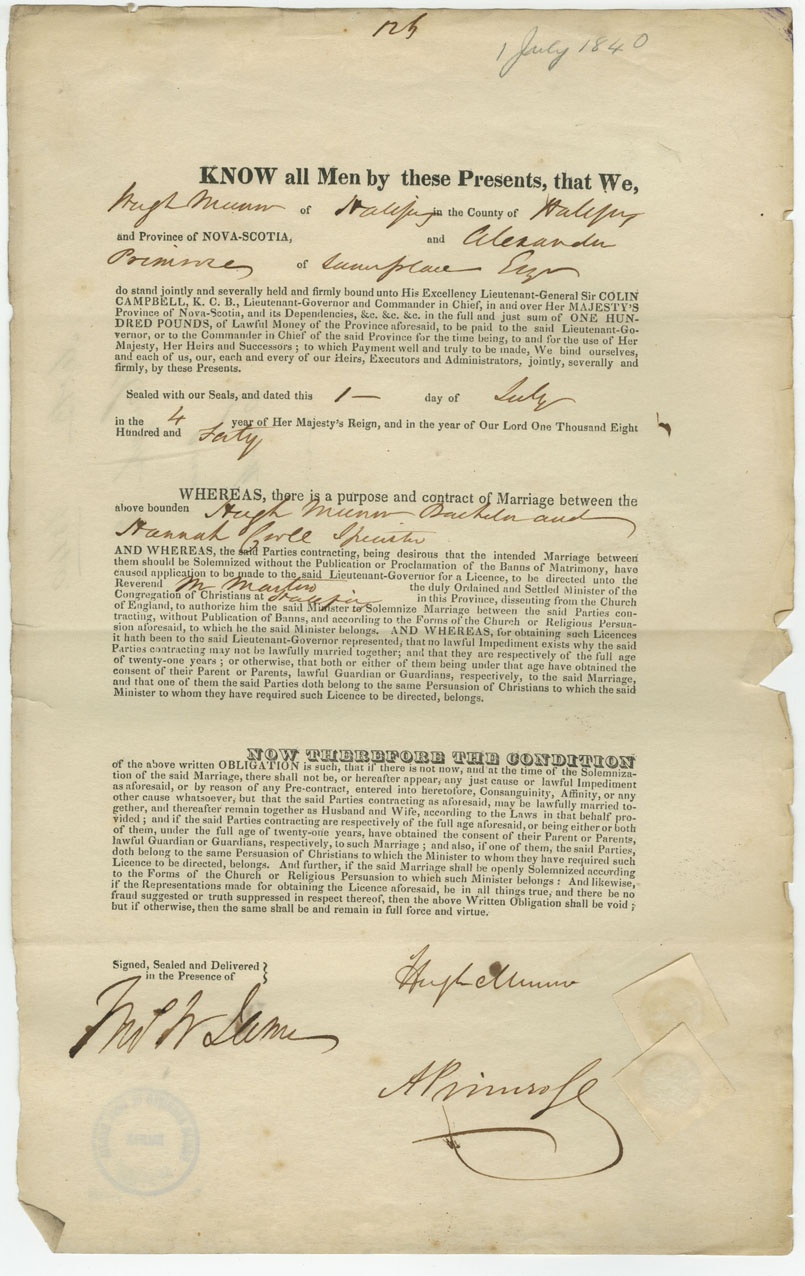 1 July 1840
KNOW all Men by these Presents, that We,
Hugh Munro of Halifax in the County of Halifax
and Province of NOVA-SCOTIA, and Alexander
Primrose of same place Esqr
do stand jointly and severally held and firmly bound unto His Excellency Lieutenant-General Sir COLIN
CAMPBELL, K. C. B., Lieutenant-Governor and Commander in Chief, in and over Her MAJESTY'S
Province of Nova-Scotia, and its Dependencies, &c. &c. &c. in the full and just sum of ONE HUN-
DRED POUNDS, of Lawful Money of the Province aforesaid, to be paid to the said Lieutenant-Go-
vernor, or to the Commander in Chief of the said Province for the time being, to and for the use of Her
Majesty, Her Heirs and Successors ; to which Payment well and truly to be made, We bind ourselves,
and each of us, our, each and every of our Heirs, Executors and Administrators, jointly, severally and
firmly, by these Presents.
Sealed with our Seals, and dated this 1— day of July
in the 4 year of Her Majesty's Reign, and in the year of Our Lord One Thousand Eight
Hundred and Forty
WHEREAS, there is a purpose and contract of Marriage between the
above bounden Hugh Munro Bachelor and
Hannah Spinster
AND WHEREAS, the said Parties contracting, being desirous that the intended Marriage between
them should be Solemnized without the Publication or Proclamation of the Banns of Matrimony, have
caused application to be made to the said Lieutenant-Governor for a Licence, to be directed unto the
Reverend Mr Martin the duly Ordained and Settled Minister of the
Congregation of Christians at Halifax in this Province, dissenting from the Church
of England, to authorize him the said Minister to Solemnize Marriage between the said Parties con-
tracting, without Publication of Banns, and according to the Forms of the Church or Religious Persua-
sion aforesaid, to which he the said Minister belongs. AND WHEREAS, for obtaining such Licences
it hath been to the said Lieutenant-Governor represented, that no lawful Impediment exists why the said
Parties contracting may not be lawfully married together; and that they are respectively of the full age
of twenty-one years ; or otherwise, that both or either of them being under that age have obtained the
consent of their Parent or Parents, lawful Guardian or Guardians, respectively, to the said Marriage,
and that one of them the said Parties doth belong to the same Persuasion of Christians to which the said
Minister to whom they have required such Licence to be directed, belongs.
NOW THEREFORE THE CONDITION
of the above written OBLIGATION is such, that if there is not now, and at the time of the Solemniza-
tion of the said Marriage, there shall not be, or hereafter appear, any just cause or lawful Impediment
as aforesaid, or by reason of any Pre-contract, entered into heretofore, Consanguinity, Affinity, or any
other cause whatsoever, but that the said Parties contracting as aforesaid, may be lawfully married to-
gether, and thereafter remain together as Husband and Wife, according to the Laws in that behalf pro-
vided ; and if the said Parties contracting are respectively of the full age aforesaid, or being either or both
of them, under the full age of twenty-one years, have obtained the consent of their Parent or Parents,
lawful Guardian or Guardians, respectively, to such Marriage ; and also, if one of them, the said Parties,
doth belong to the same Persuasion of Christians to which the Minister to whom they have required such
Licence to be directed, belongs. And further, if the said Marriage shall be openly Solemnized according
to the Forms of the Church or Religious Persuasion to which such Minister belongs : And likewise,
if the Representations made for obtaining the Licence aforesaid, be in all things true, and there be no
fraud suggested or truth suppressed in respect thereof, then the above Written Obligation shall be void ;
but if otherwise, then the same shall be and remain in full force and virtue.
Signed, Sealed and Delivered
in the Presence of
Hugh Munro
Thos W James
A Primrose